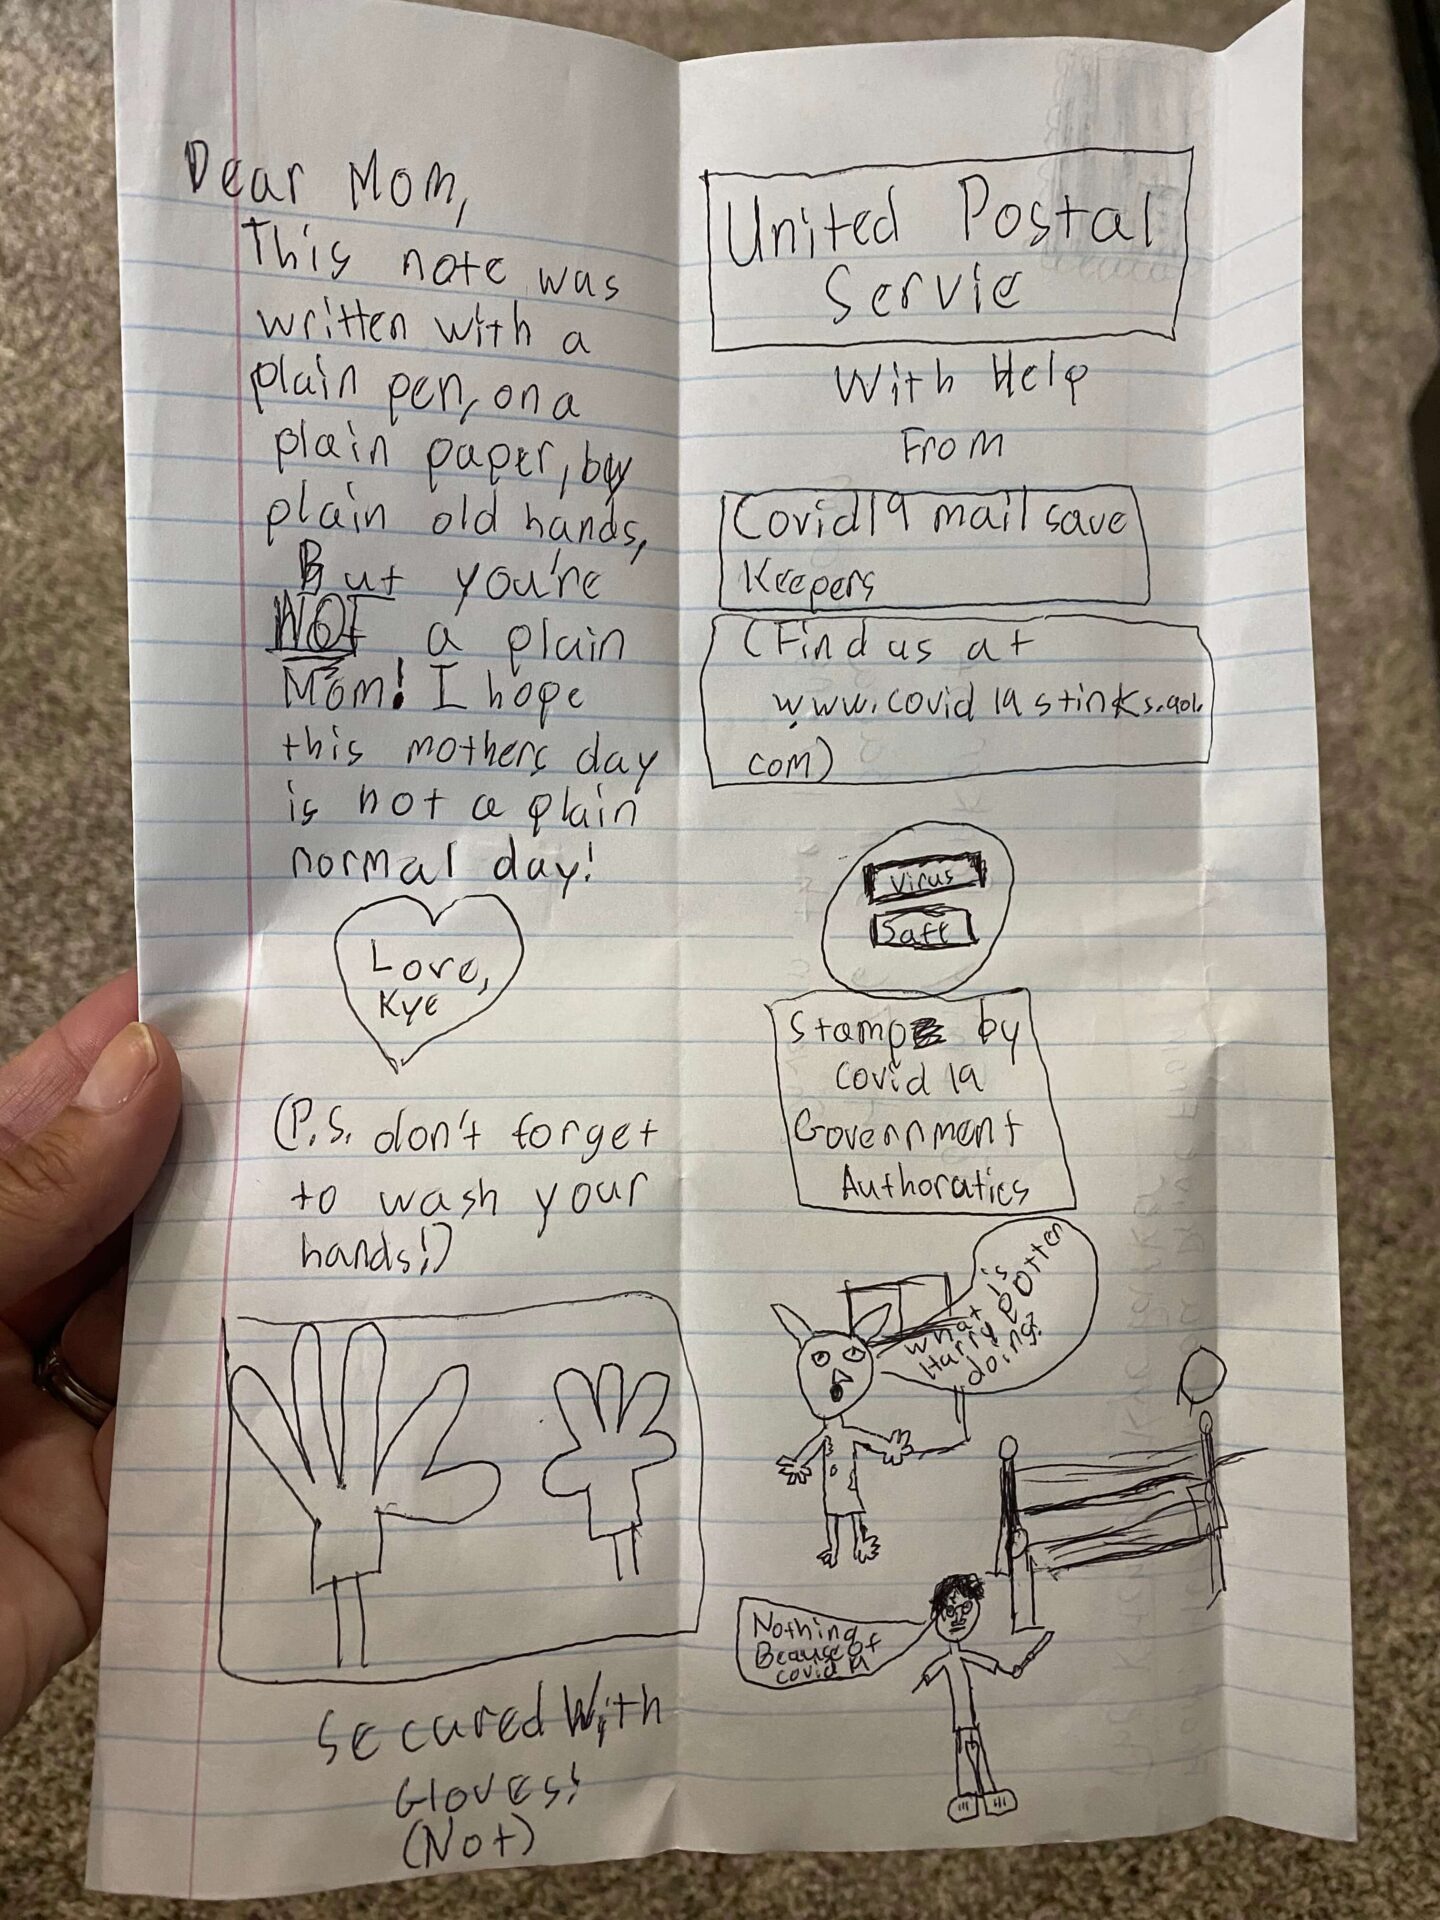 Dear Mom,
This note was
written with a
plain pen, on a
plain paper, by
plain old hands,
But you're
NOT a plain
Mom! I hope
this mothers day
is not a plain
normal day!
Love,
Kye
(P.S. don't forget
to wash your
hands!)
Secured With
Gloves!
(Not)
United Postal
Servie
With Help
From
Covid19 mail save
Keepers
(Find us at
www.covid19stinks.aol.
com)
Virus
Safe
Stamp by
Covid 19
Government
Authoraties
What is
Harry Potter
doing?
Nothing
Because of
Covid 19